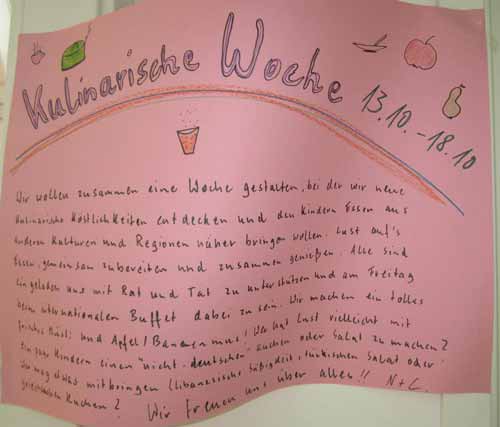 Kulinarische Woche
13.10.-18.10
Wir wollen zusammen eine Woche gestalten, bei der wir neue
kulinarische Köstlichkeiten entdecken und den Kindern Essen aus
anderen Kulturen und Regionen näher bringen wollen. Lust auf's
Essen, gemeinsam zubereiten und zusammen genießen. Alle sind
eingeladen uns mit Rat und Tat zu unterstützen und am Freitag
beim internationalen Buffet dabei zu sein. Wir machen ein tolles
frisches Müsli und Apfel/Bananenmus! Wer hat Lust vielleicht mit
ein paar Kindern einen "nicht-deutschen" Kuchen oder Salat zu machen?
Wer mag etwas mitbringen (libanesische Süßigkeit, türkischen Salat oder
griechischen Kuchen?
Wir freuen uns über alles!! N+C.